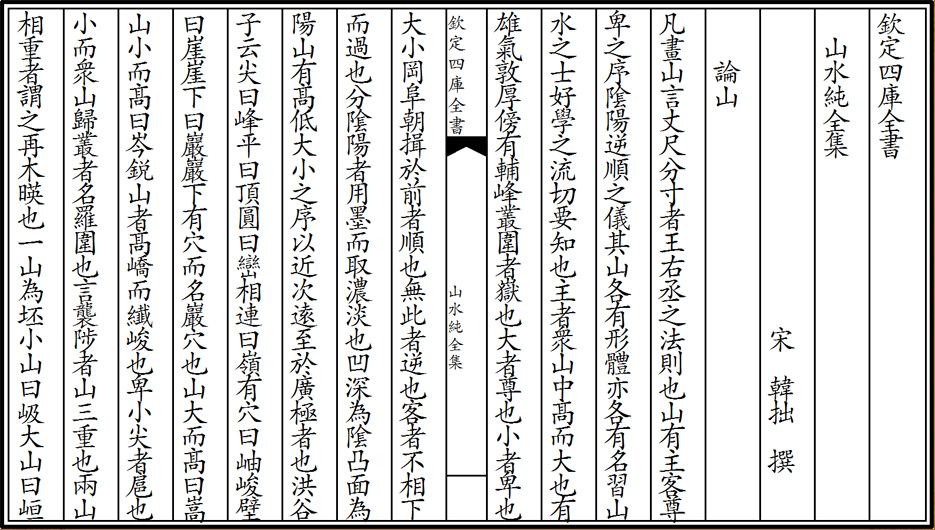 欽定四庫全書
山水純全集
宋 韓拙 撰
論山
凡畫山言丈尺分寸者王右丞之法則也山有主客尊
卑之序隂陽逆順之儀其山各有形體亦各有名習山
水之士好學之流切要知也主者衆山中髙而大也有
雄氣敦厚傍有輔峰叢圍者嶽也大者尊也小者卑也
欽定四庫全書 山水純全集
大小岡阜朝揖於前者順也無此者逆也客者不相下
而過也分隂陽者用墨而取濃淡也凹深為隂凸面為
陽山有髙低大小之序以近次遠至於廣極者也洪谷
子云尖曰峰平曰頂圓曰巒相連曰嶺有穴曰岫峻壁
曰崖崖下曰巖巖下有穴而名巖穴也山大而髙曰嵩
山小而髙曰岑鋭山者髙嶠而纖峻也卑小尖者扈也
小而衆山歸叢者名羅圍也言襲陟者山三重也兩山
相重者謂之再木暎也一山為坯小山曰岌大山曰峘